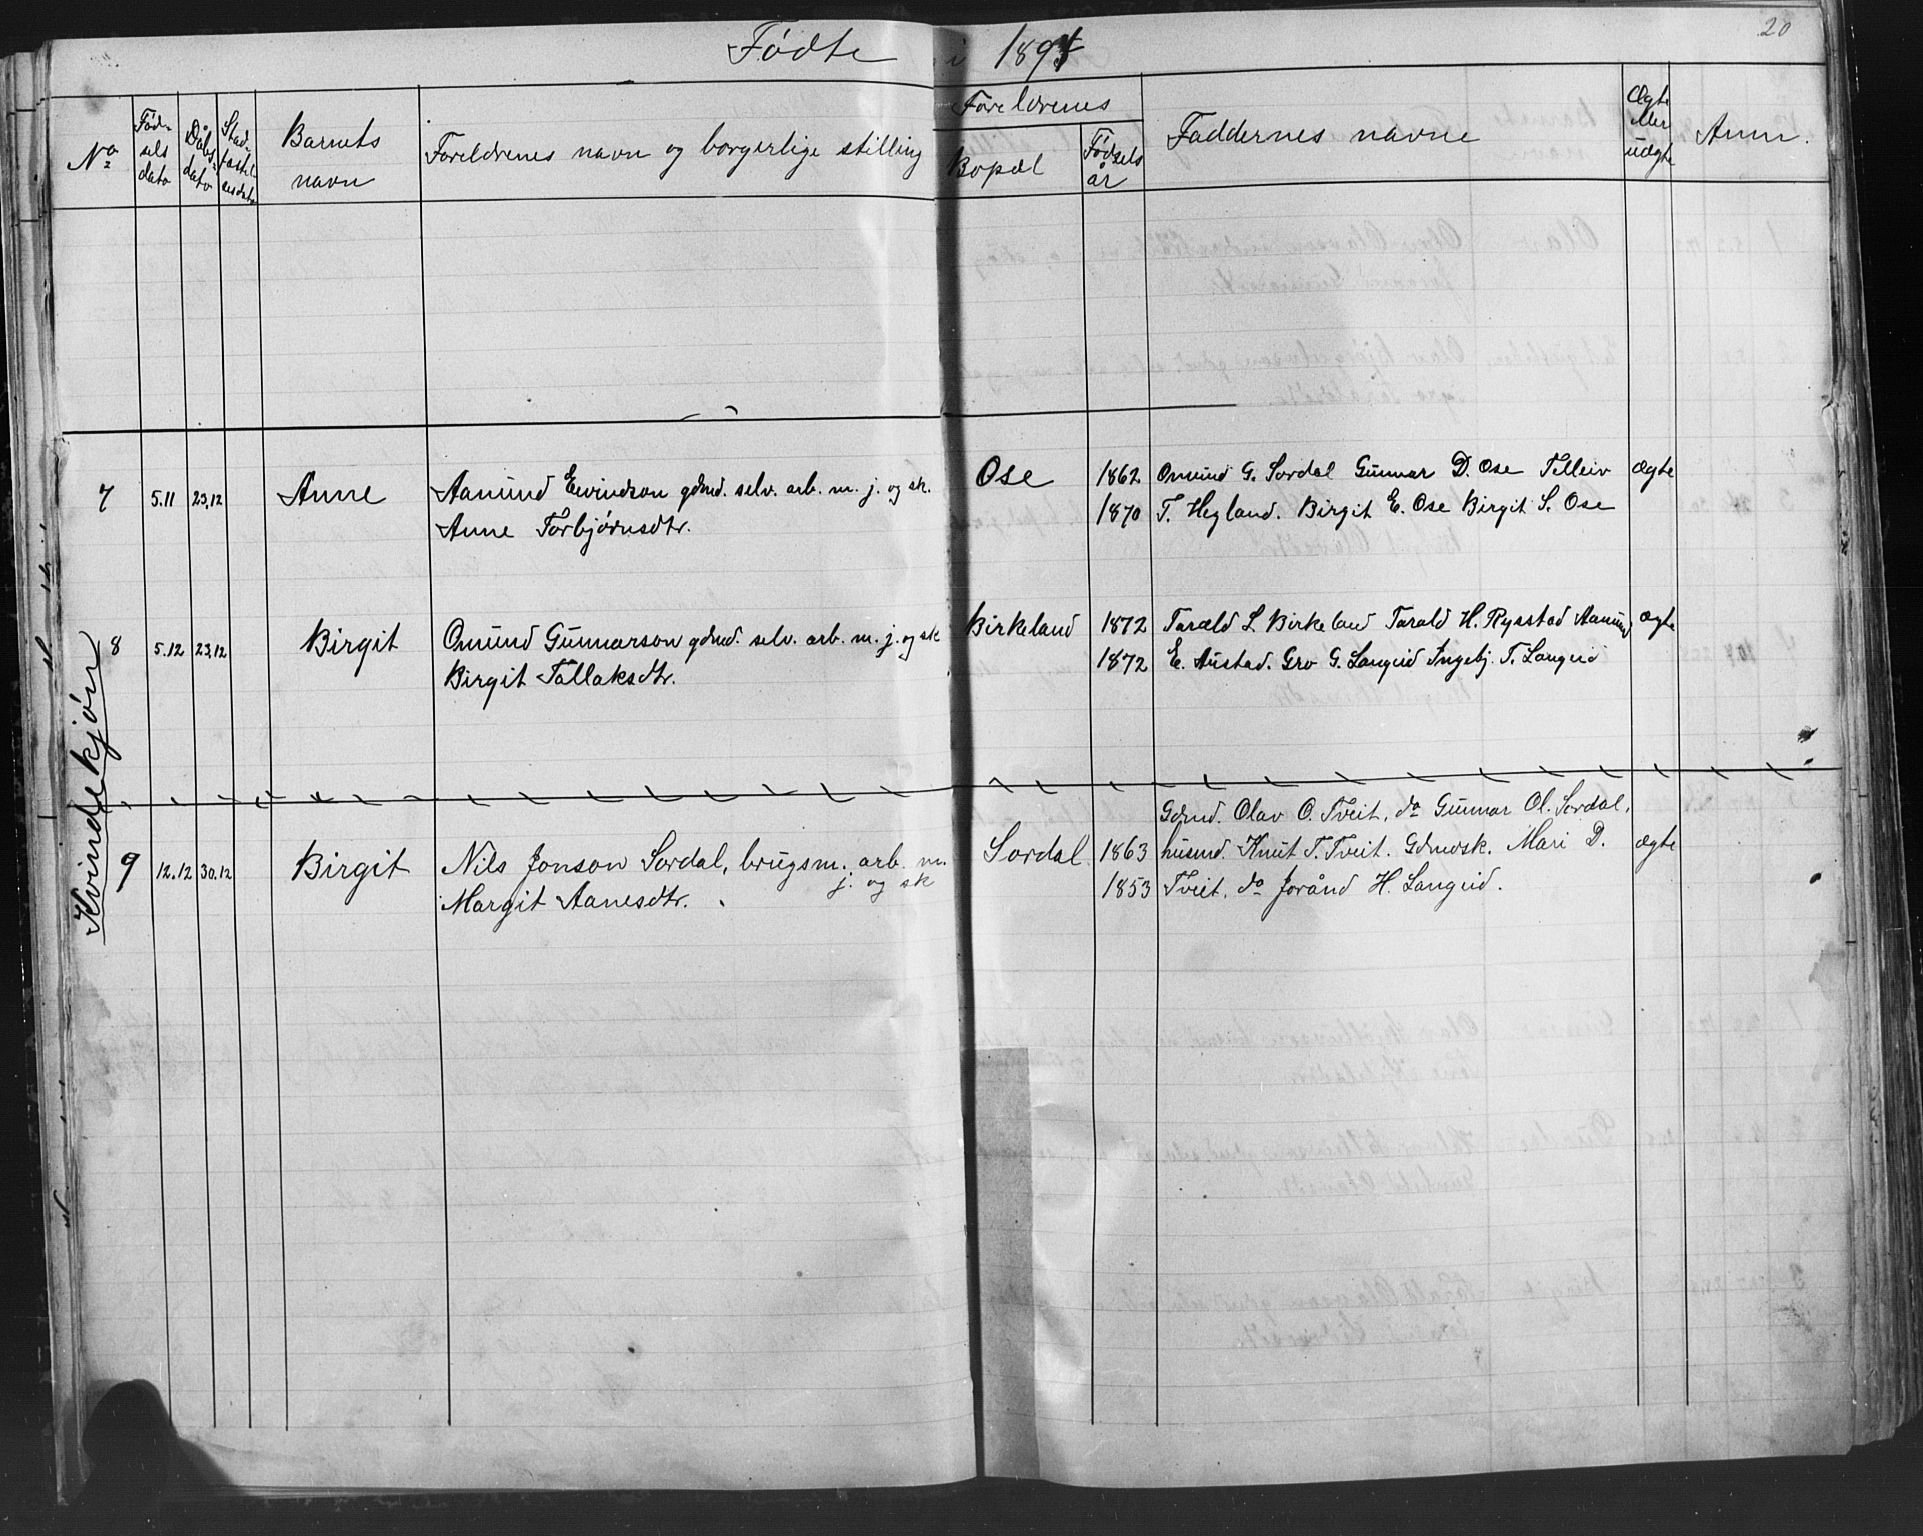 20
Födte i 1894
No
Föd-
sels
dato
Dåbs-
dato
Stad-
fæstel-
Barnets
navn
Foreldrenes navn og borgerlige stilling
Foreldrenes
Bopæl
Födsels
år
Faddernes navne
Ægte
eller
uægte
Anm.
7 5.11 23.12 Anne Aanund Eivindson gdmd. selv. arb. m. j. og sk. Ose 1862 Omund G. Sordal Gunnar D. Ose Telleiv ægte
Anne Torbjörnsdtr. 1870 T. Hegland. Birgit E. Ose Birgit S. Ose
8 5.12 23.12 Birgit Omund Gunnarson gdmd. selv. arb. m. j. og sk Birkeland 1872 Tarald L. Birkeland Tarald H. Rysstad Aanund ægte
Birgit Tallaksdtr. 1872 E. Austad. Gro G. Langeid Ingebj. T. Langeid
Kvindekjön
Gdmd. Olav O. Tveit, do Gunnar Ol. Sordal,
9 12.12 30.12 Birgit Nils Jonson Sordal, brugsm. arb. m. Sordal 1863 husmd. Knut T. Tveit. Gdmosk. Mari D. ægte
j. og sk
Margit Aanesdtr. 1853 Tveit, do Jorånd H. Langeid.